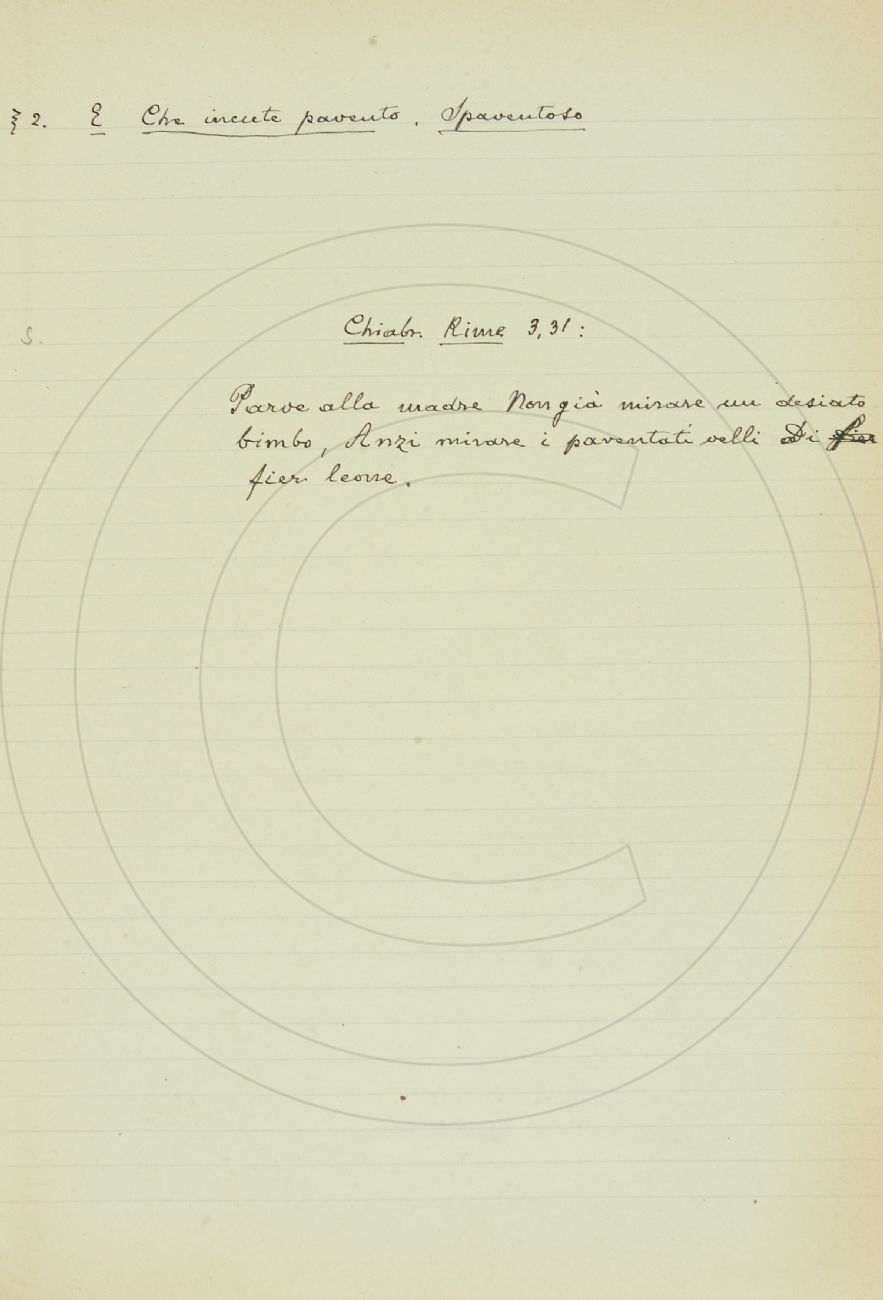 § 2. E Che incute pavento. Spaventoso
S. Chiabr. Rime 3, 31:
Parve alla madre Non già mirare un desiato
bimbo, Anzi mirare i paventati velli Di fier
fier leone.